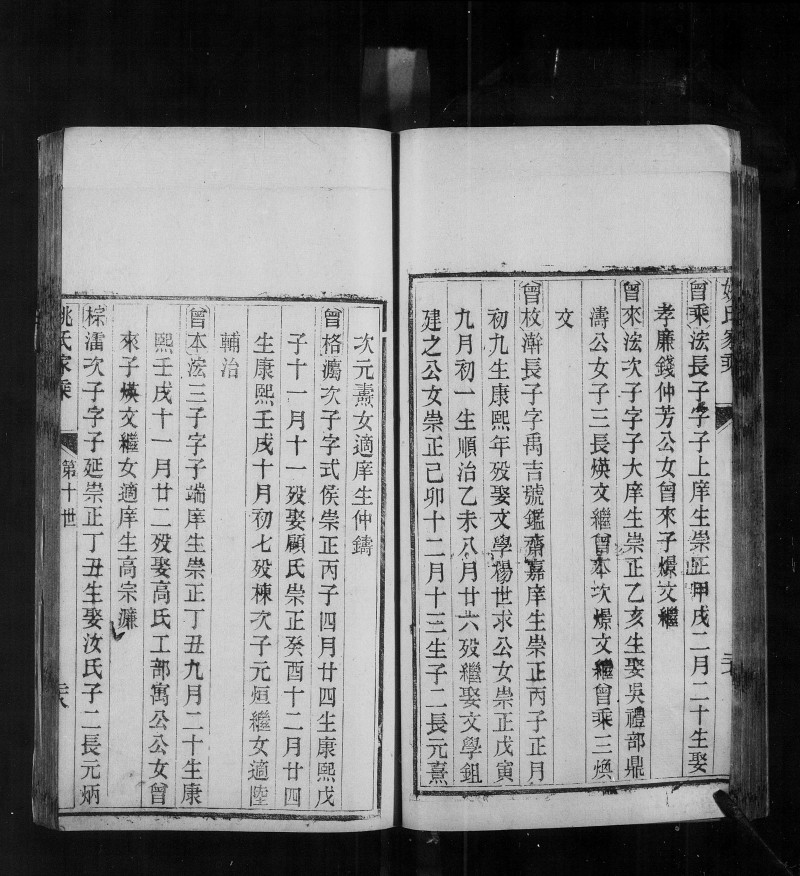 姚氏家乘
曾乘浤長子字子上庠生崇正甲戌二月二十生娶
孝廉錢仲芳公女曾來子燝文繼
曾來浤次子字子大庠生崇正乙亥生娶吳禮部鼎
濤公女子三長煐文繼曾本次燝文繼曾乘三煥
文
曾枚澣長子字禹吉號鑑齋嘉庠生崇正丙子正月
初九生康熙年歿娶文學楊世求公女崇正戊寅
九月初一生順治乙未八月廿六歿繼娶文學鉏
建之公女崇正己卯十二月十三生子二長元熹
次元燾女適庠生仲鑄
曾格灊次子字式侯崇正丙子四月廿四生康熙戊
子十一月十一歿娶顧氏崇正癸酉十二月廿四
生康熙壬戌十月初七歿棟次子元烜繼女適陸
輔治
曾本浤三子字子端庠生崇正丁丑九月二十生康
熙壬戌十一月廿二歿娶高氏工部寓公公女曾
來子煐文繼女適庠生高宗濂
棕濡次子字子延崇正丁丑生娶汝氏子二長元炳
姚氏家乘 第十世